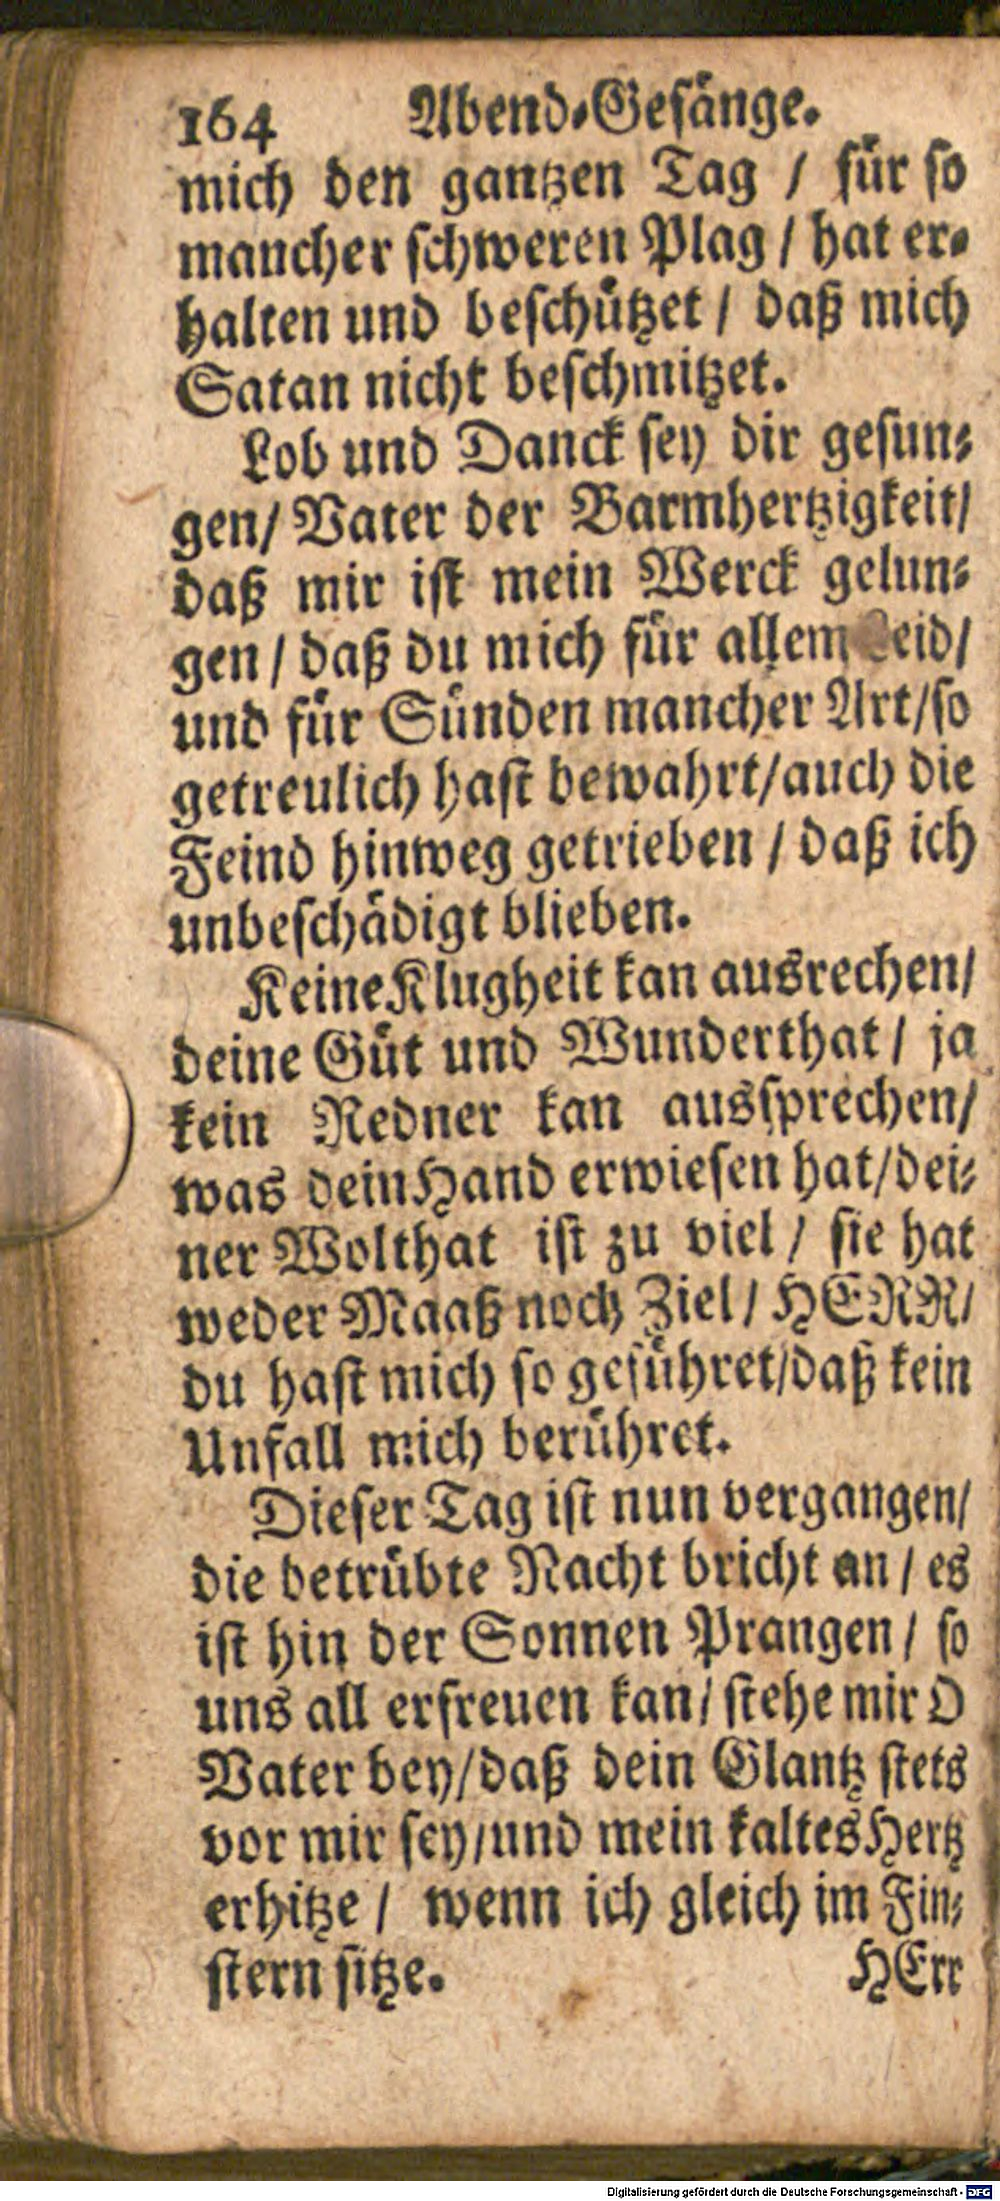 164 Abend-Gesänge.
mich den gantzen Tag / für so
mancher schweren Plag / hat er-
halten und beschützet / daß mich
Satan nicht beschmitzet.
Lob und Danck sey dir gesun-
gen/ Vater der Barmhertzigkeit/
daß mir ist mein Werck gelun-
gen / daß du mich für allem Leid/
und für Sünden mancher Art/so
getreulich hast bewahrt/auch die
Feind hinweg getrieben / daß ich
unbeschädigt blieben.
Keine Klugheit kan ausrechen/
deine Güt und Wunderthat / ja
kein Redner kan aussprechen/
was dein Hand erwiesen hat/dei-
ner Wolthat ist zu viel / sie hat
weder Maaß noch Ziel / HERR/
du hast mich so geführet/daß kein
Unfall mich berühret.
Dieser Tag ist nun vergangen/
die betrübte Nacht bricht an / es
ist hin der Sonnen Prangen / so
uns all erfreuen kan/ stehe mir O
Vater bey/daß dein Glantz stets
vor mir sey/und mein kaltes Hertz
erhitze / wenn ich gleich im Fin-
stern sitze. HErr
Digitalisierung gefördert durch die Deutsche Forschungsgemeinschaft - DFG